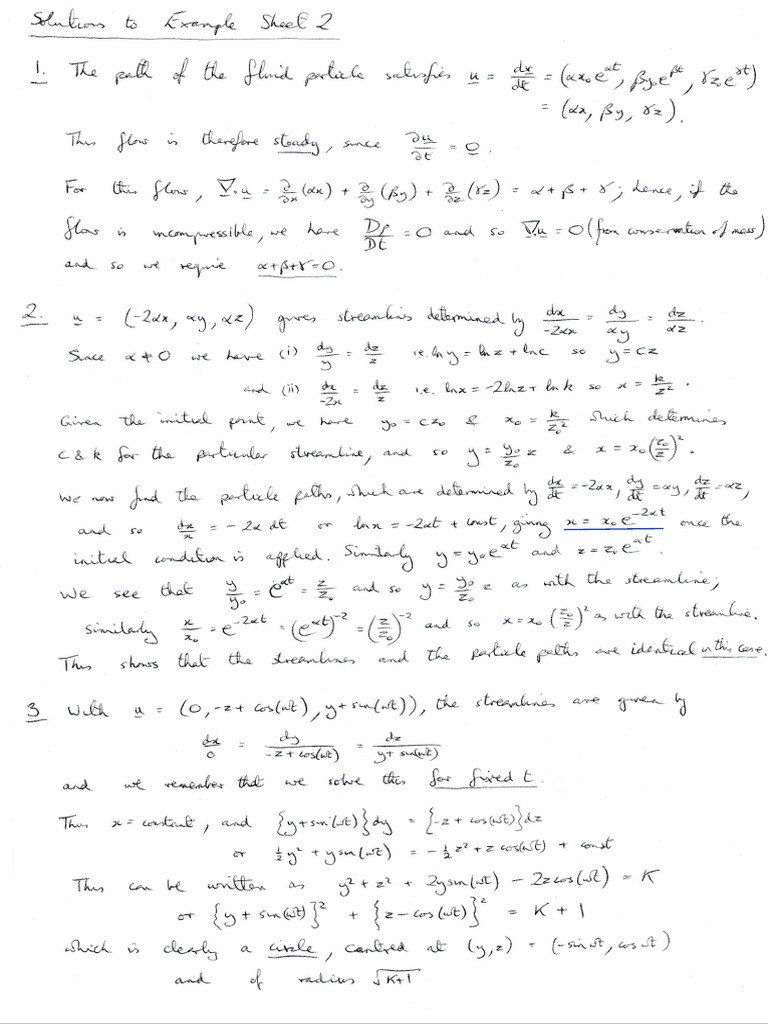 Solutions to Example Sheet 2
1. The path of the fluid particle satisfies u = dx/dt = (αx₀e^{αt}, βy₀e^{βt}, γz₀e^{γt})
= (αx, βy, γz).
This flow is therefore steady, since ∂u/∂t = 0.
For this flow, ∇.u = ∂/∂x(αx) + ∂/∂y(βy) + ∂/∂z(γz) = α+β+γ; hence, if the
flow is incompressible, we have Dρ/Dt = 0 and so ∇.u = 0 (from conservation of mass)
and so we require α+β+γ=0.
2. u = (-2αx, αy, αz) gives streamlines determined by dx/-2αx = dy/αy = dz/αz.
Since α≠0 we have (i) dy/y = dz/z i.e. ln y = ln z + ln c so y = cz
and (ii) dx/-2x = dz/z i.e. ln x = -2ln z + ln k so x = k/z².
Given the initial point, we have y₀ = cz₀ & x₀ = k/z₀² which determines
c & k for the particular streamline, and so y = y₀/z₀ z & x = x₀(z₀/z)².
We now find the particle paths, which are determined by dx/dt = -2αx, dy/dt = αy, dz/dt = αz,
and so dx/x = -2α dt or ln x = -2αt + const, giving x = x₀e^{-2αt} once the
initial condition is applied. Similarly y = y₀e^{αt} and z = z₀e^{αt}.
We see that y/y₀ = e^{αt} = z/z₀ and so y = y₀/z₀ z as with the streamline;
similarly x/x₀ = e^{-2αt} = (e^{αt})^{-2} = (z/z₀)^{-2} and so x = x₀(z₀/z)² as with the streamline.
This shows that the streamlines and the particle paths are identical in this case.
3 With u = (0, -z + cos(ωt), y + sin(ωt)), the streamlines are given by
dx/0 = dy/-z + cos(ωt) = dz/y + sin(ωt)
and we remember that we solve this for fixed t.
Thus x = constant, and {y + sin(ωt)}dy = {-z + cos(ωt)}dz
or ½y² + y sin(ωt) = -½z² + z cos(ωt) + const
This can be written as y² + z² + 2y sin(ωt) - 2z cos(ωt) = K
or {y + sin(ωt)}² + {z - cos(ωt)}² = K + 1
which is clearly a circle, centred at (y,z) = (-sin ωt, cos ωt)
and of radius √K+1